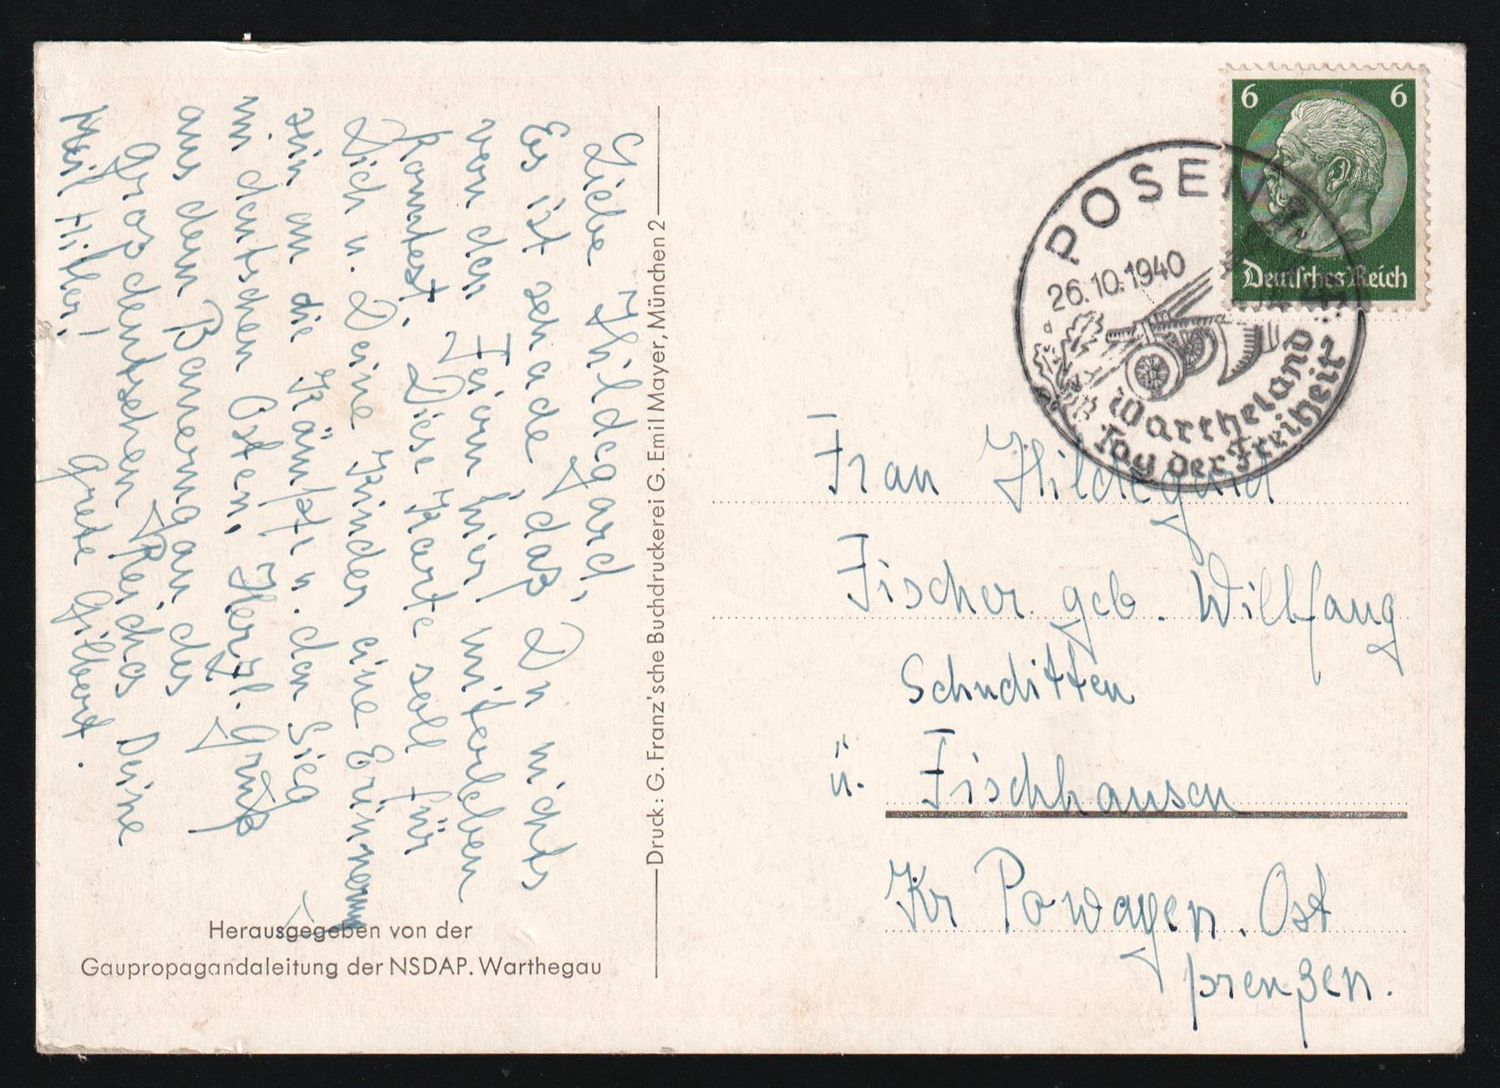 Liebe Hildegard,
Es ist schade, daß Du nichts
von den Feiern hier miterleben
konntest. Diese Karte soll für
Dich u. Deine Kinder eine Erinnerung
sein an die Kämpfe u. den Sieg
im deutschen Osten, Herzl. Grüße
aus dem Bauerngau des
Großdeutschen Reiches Deine
Heil Hitler! Grete Gilbert.
Herausgegeben von der
Gaupropagandaleitung der NSDAP. Warthegau
Druck: G. Franz'sche Buchdruckerei G. Emil Mayer, München 2
6 6
Deutsches Reich
POSEN
26.10.1940
Wartheland
Tag der Freiheit
Frau Hildegard
Fischer geb. Willfang
Schuditten
ü. Fischhausen
Kr Powayen. Ost
preußen.